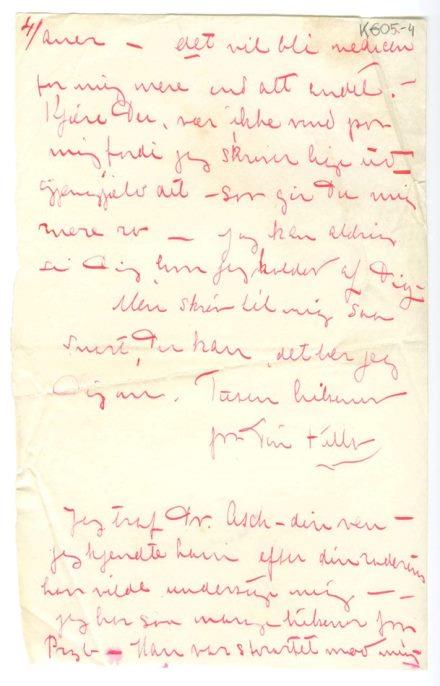 4/ K605.-4
aner — det vil bli medicin
for mig mere end alt andet. —
Kjære Du, vær ikke vred paa
mig fordi jeg skriver lige ud
gjengjæld det — saa gir Du mig
mere ro — jeg kan aldrig
si Dig hvor jeg holder af Dig —
Men skriv til mig saa
snart Du kan, det ber jeg
Dig om. Tusen hilsener
fra Din Tulla
Jeg traf Dr. Asch — din ven —
jeg kjendte ham efter din radering
han vilde undersøge mig — —
jeg har saa mange hilsener fra
Przb — Han var mod mig